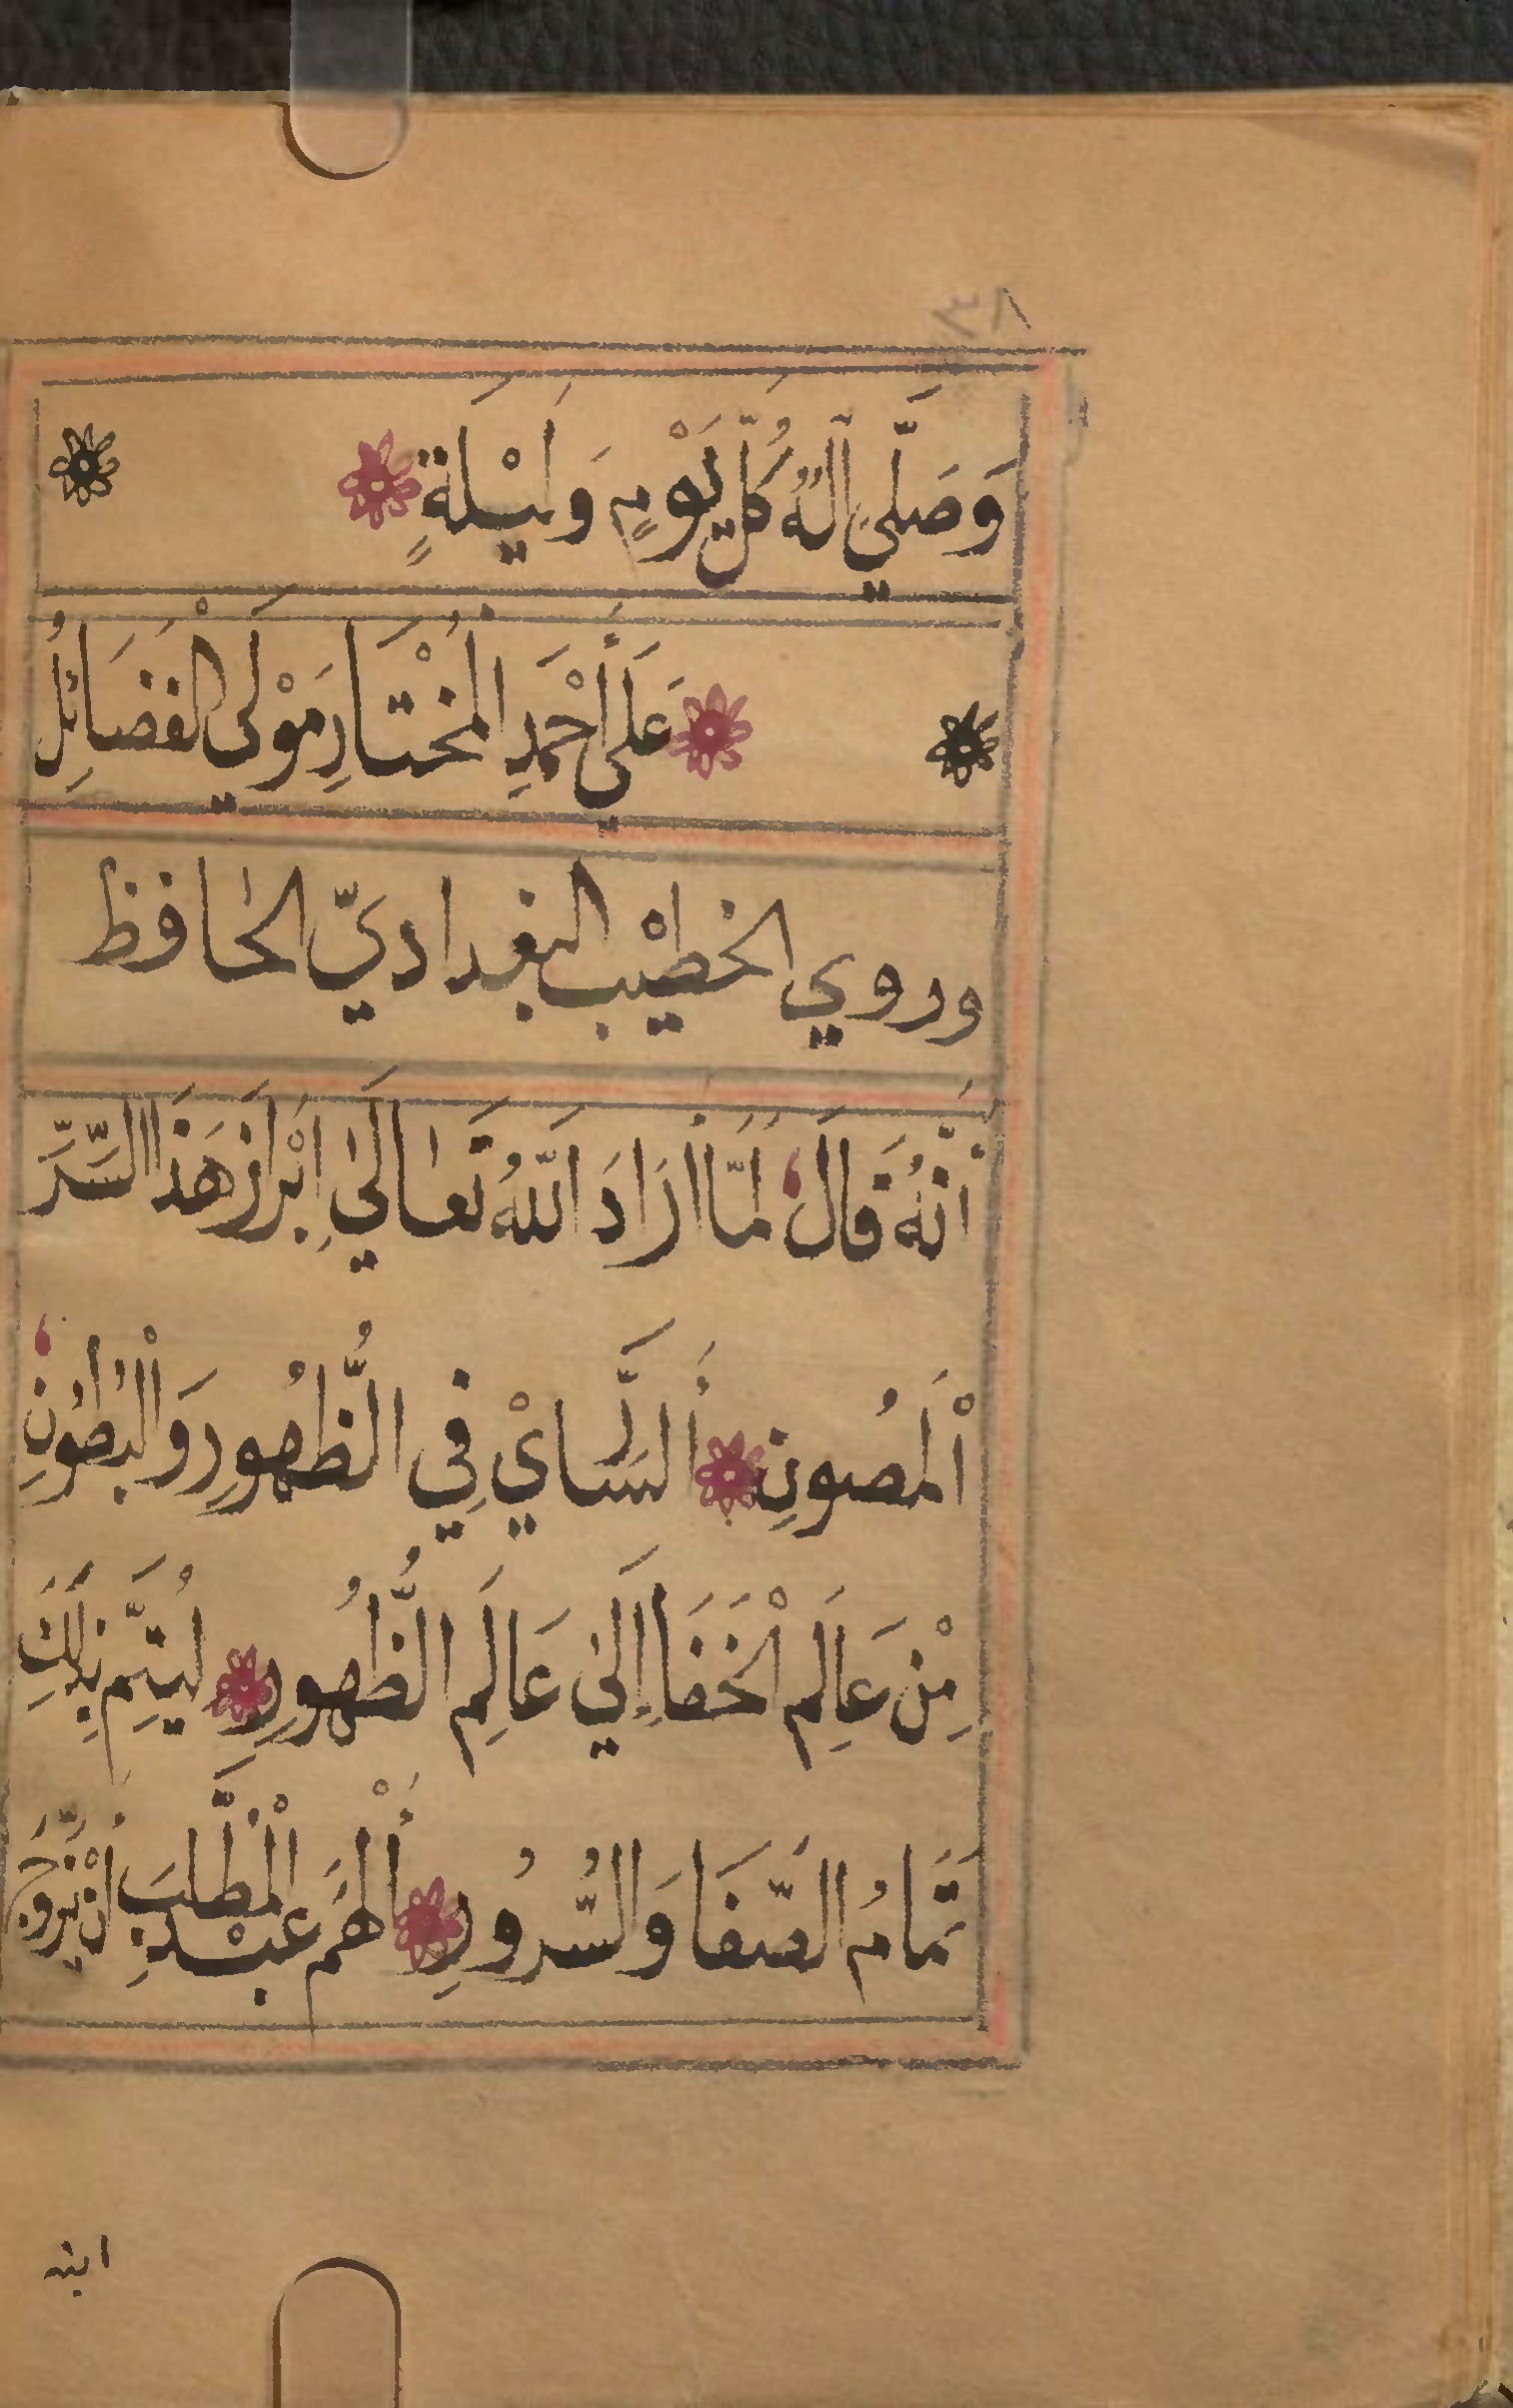 وَصَلَّي اٰلٰهُ كُلّ يَوْمٍ وَلَيْلَةٍ
عَلَي أَحْمَدِ الْمُخْتَارِ مَوْلَي الْفَضَائِلُ
وروي الخطيْب البغداديّ الحافظ
أَنَّهُ قَالَ لَمَّا اَرَادَ اللّٰهُ تَعَالَي اِبْرَازَ هَذَا السِّرَّ
اَلْمَصُونِ أَلسَّايْ فِي الظُّهُورِ وَالْبُطُوْنِ
مِنْ عَالَمِ الْخَفَاءِ اِلَي عَالَمِ الظُّهُورِ لُيَتِمَّ بِذَلِكَ
تَمَامُ الصَّفَا وَالسُّرُورِ أَلْهَمَ عَبْدِ الْمُطَّلَبَ أَنْ يَّزَوِّجَ
ابنه